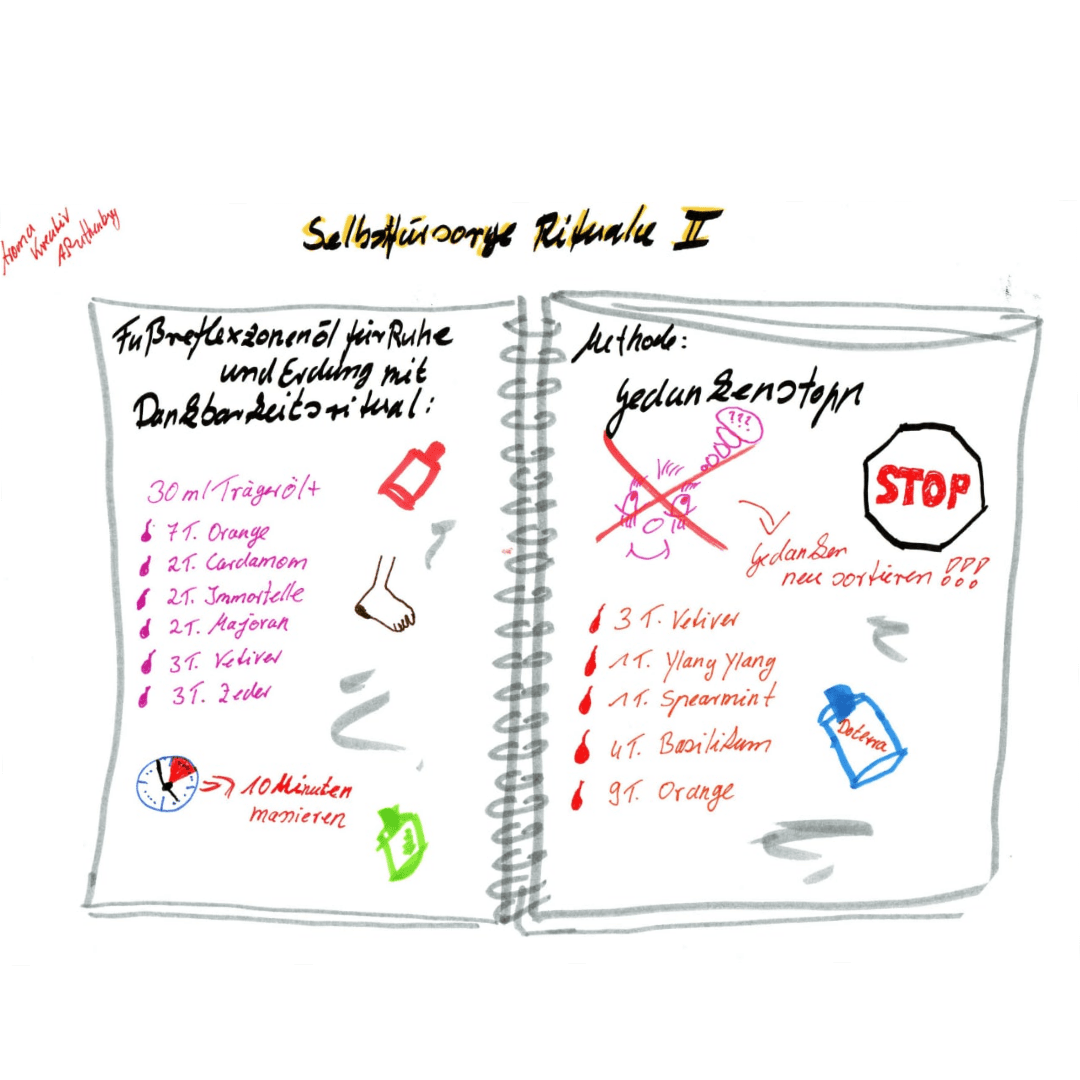 Aroma
Kreativ
ARuthenberg
Selbstfürsorge Rituale II
Fußreflexzonenöl für Ruhe
und Erdung mit
Dankbarkeitsritual:
30 ml Trägeröl +
7 T. Orange
2 T. Cardamom
2 T. Immortelle
2 T. Majoran
3 T. Vetiver
3 T. Zeder
10 Minuten
massieren
Methode:
Gedankenstopp
???
STOP
Gedanken
neu sortieren !!!
3 T. Vetiver
1 T. Ylang Ylang
1 T. Spearmint
4 T. Basilikum
9 T. Orange
Doterra